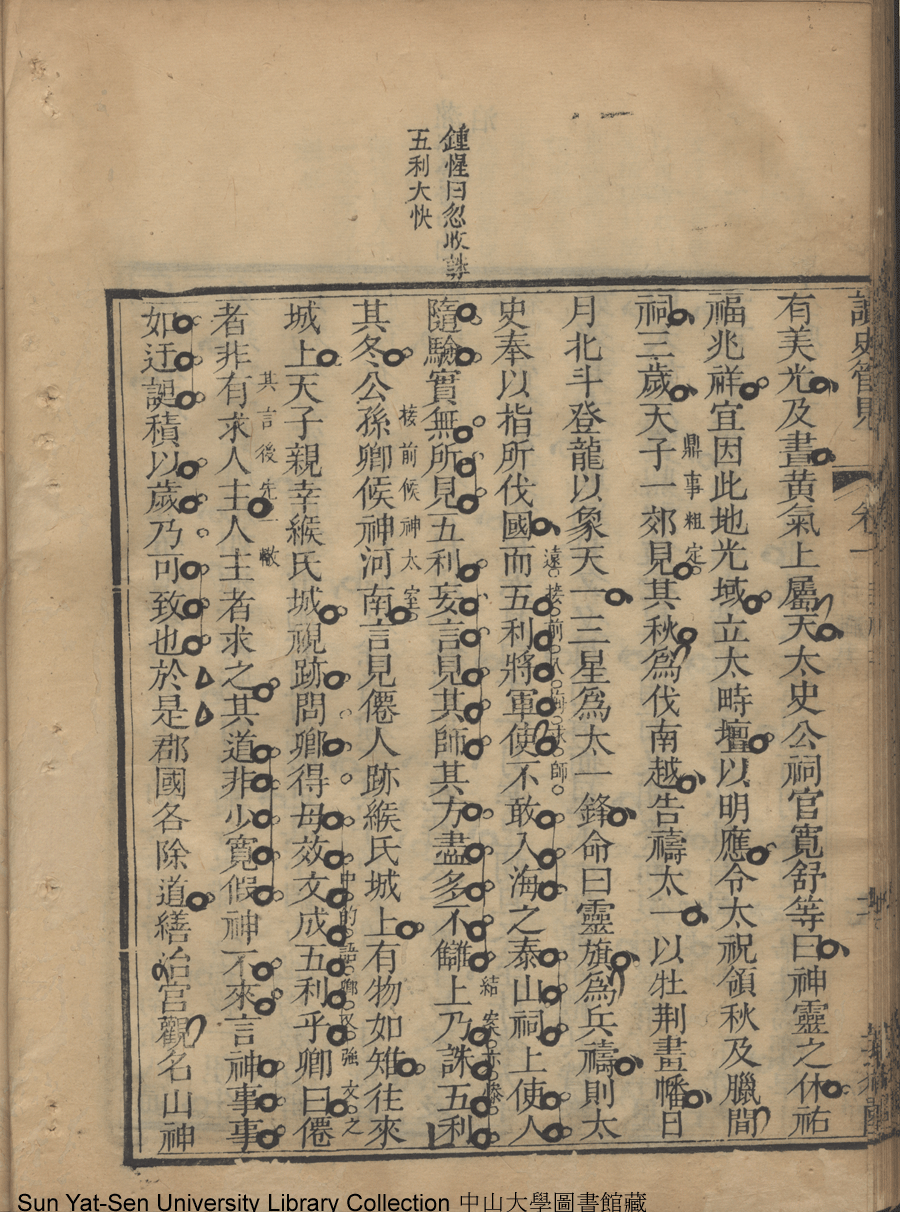 鍾惺曰忽收誅
五利大快
有美光及晝黃氣上屬天太史公祠官寬舒等曰神靈之休祐
福兆祥宜因此地光域立太畤壇以明應令太祝領秋及臘間
祠三歲天子一郊見其秋爲伐南越告禱太一以牡荆畫幡日
鼎事粗定
月北斗登龍以象天一三星爲太一鋒命曰靈旗爲兵禱則太
史奉以指所伐國而五利將軍使不敢入海之泰山祠上使人
遠接前入海求師
隨驗實無所見五利妄言見其師其方盡多不讎上乃誅五利
結案亦慘
其冬公孫卿候神河南言見僊人跡緱氏城上有物如雉往來
接前候神太室
城上天子親幸緱氏城視跡問卿得毋效文成五利乎卿曰僊
中的語卿又強文之
者非有求人主人主者求之其道非少寬假神不來言神事事
其言後先一轍
如迂誕積以歲乃可致也於是郡國各除道繕治宫觀名山神
Sun Yat-Sen University Library Collection 中山大學圖書館藏